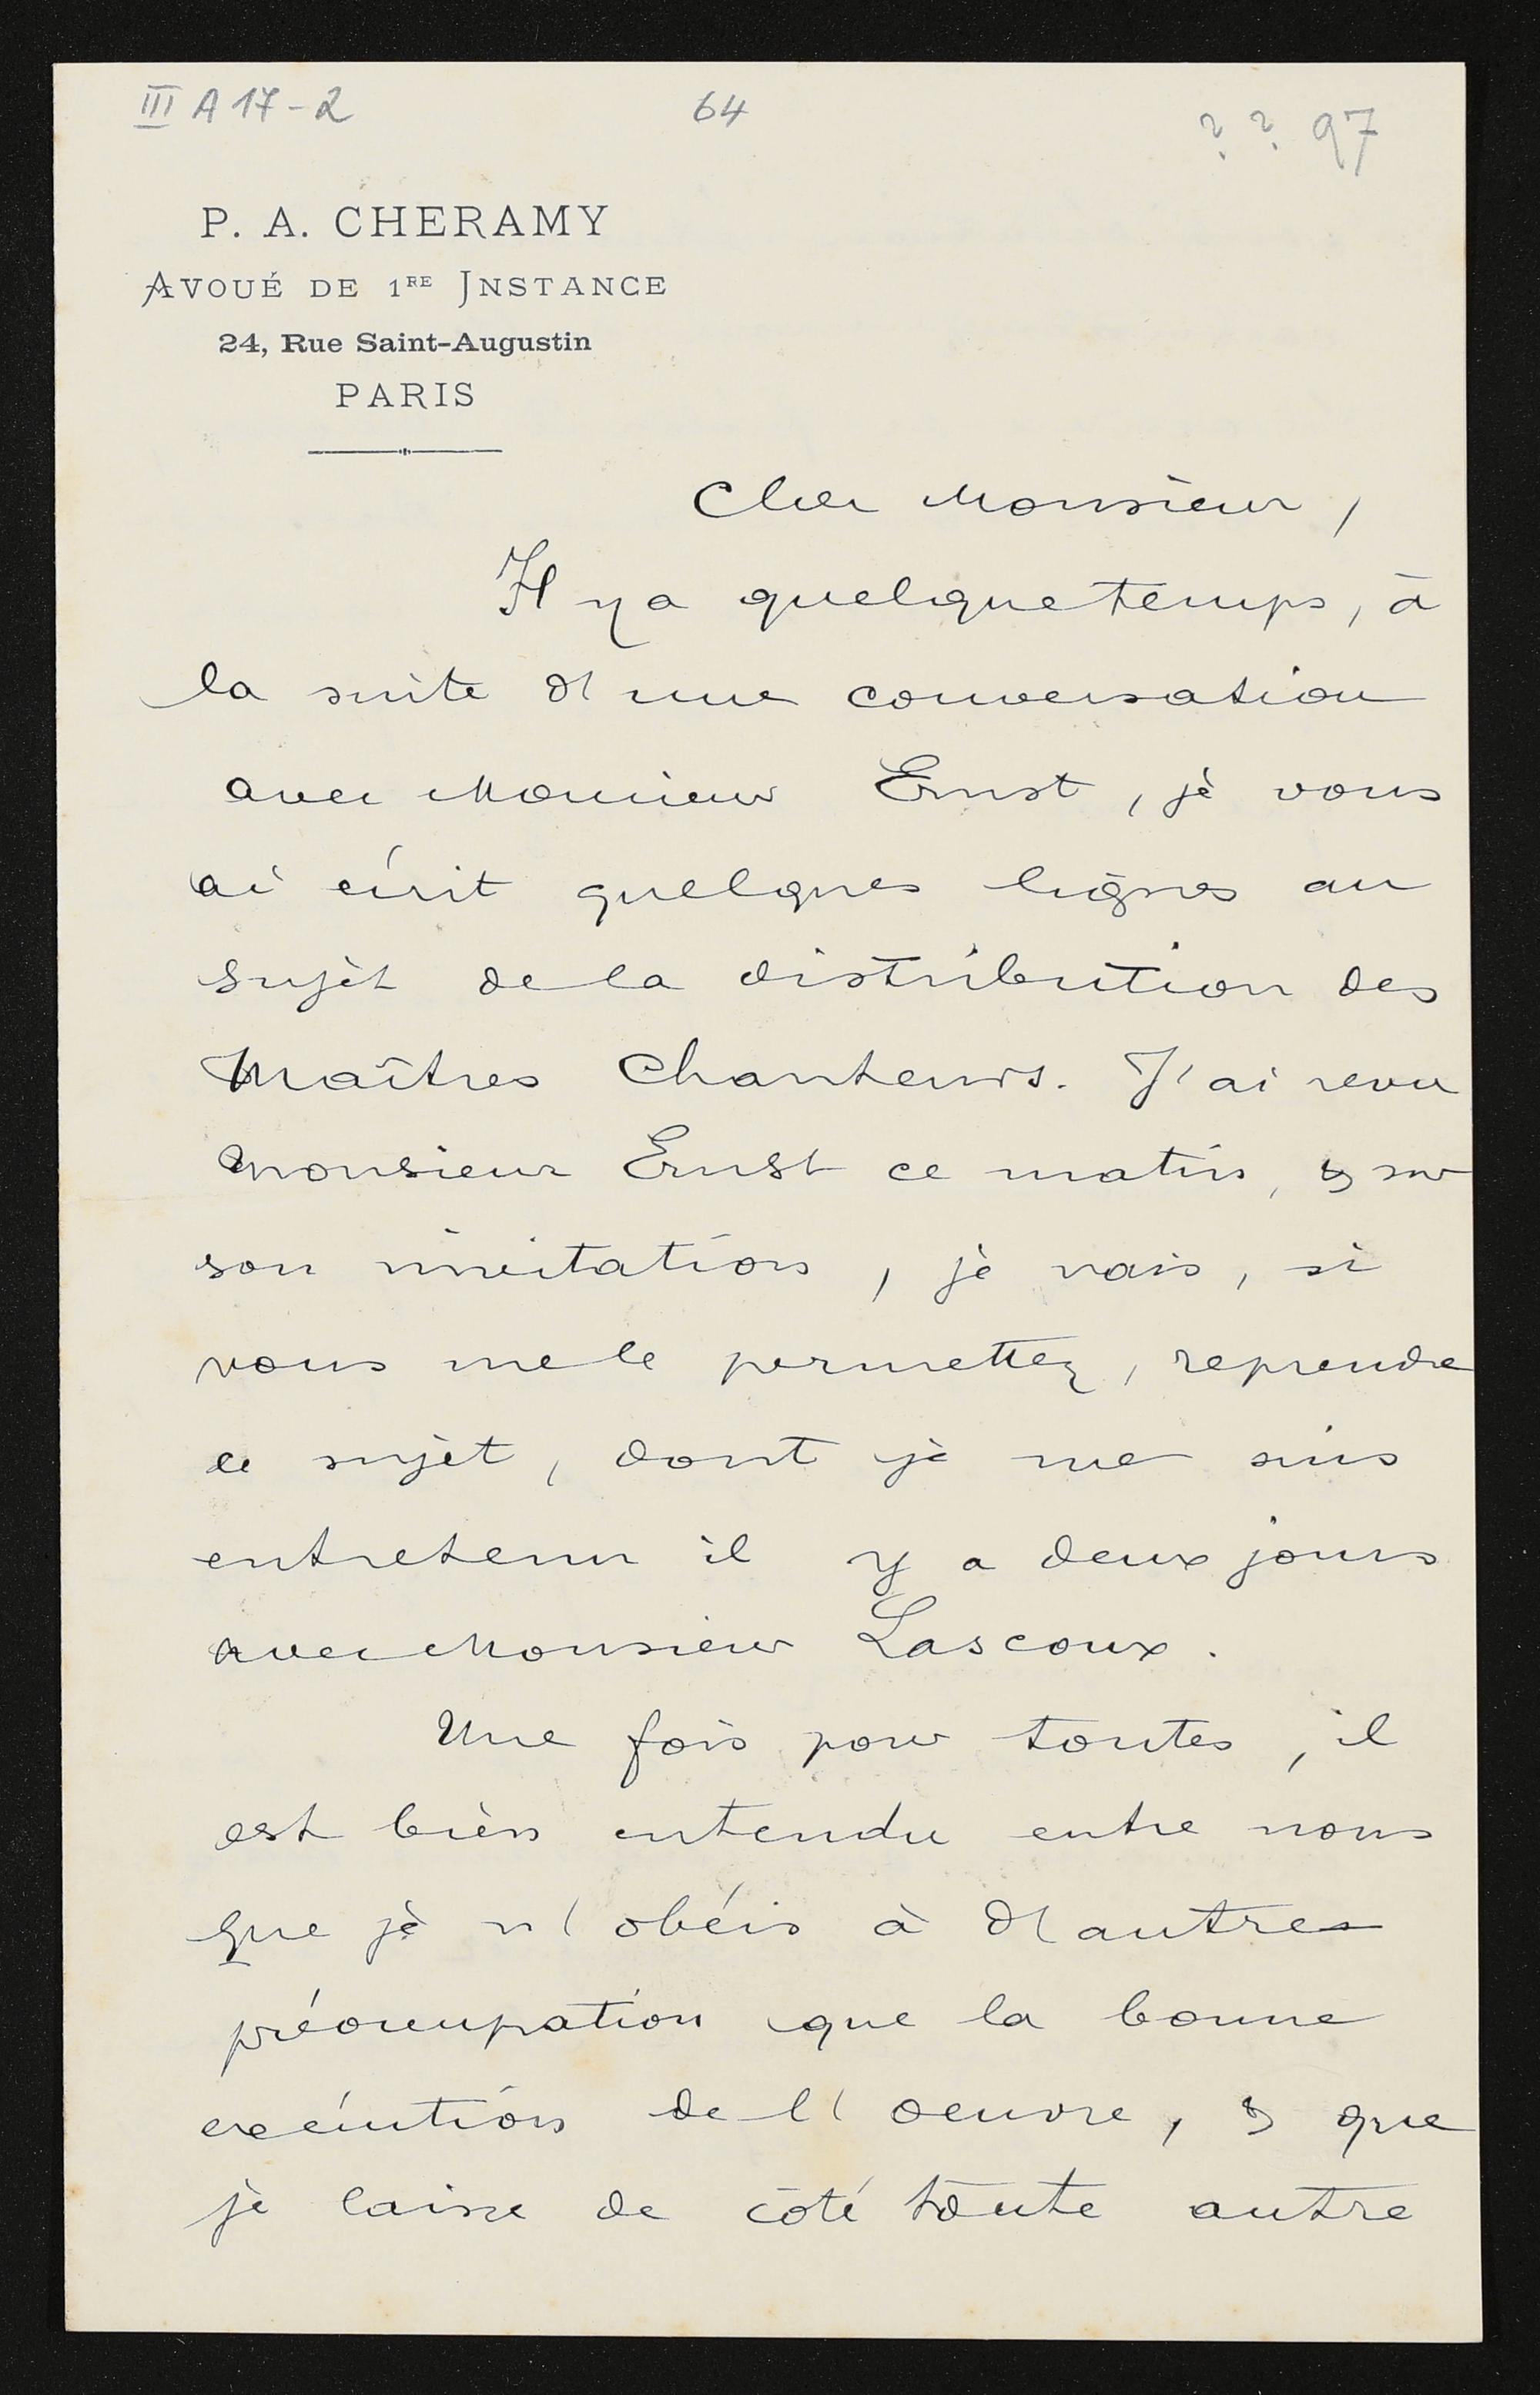 III A 17-2
64
? ? 97
P. A. CHERAMY
AVOUÉ DE 1RE INSTANCE
24, Rue Saint-Augustin
PARIS
Cher Monsieur,
Il y a quelque temps, à
la suite d'une conversation
avec Monsieur Ernst, je vous
ai écrit quelques lignes au
sujet de la distribution des
Maîtres Chanteurs. J'ai revu
Monsieur Ernst ce matin, & sur
son invitation, je vais, si
vous me le permettez, reprendre
ce sujet, dont je me suis
entretenu il y a deux jours
avec Monsieur Lascoux.
Une fois pour toutes, il
est bien entendu entre nous
que je n'obéis à d'autres
préoccupation que la bonne
exécution de l'oeuvre, & que
je laisse de côté toute autre